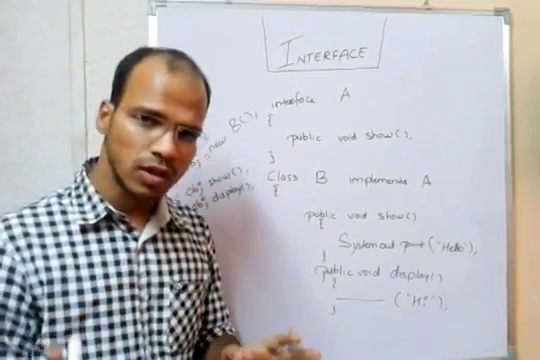 INTERFACE
interface A
{
public void show();
}
Class B implements A
{
public void show()
{
System.out.print("Hello");
}
public void display()
{
("Hi");
}
= new B();
obj.show();
obj.display();